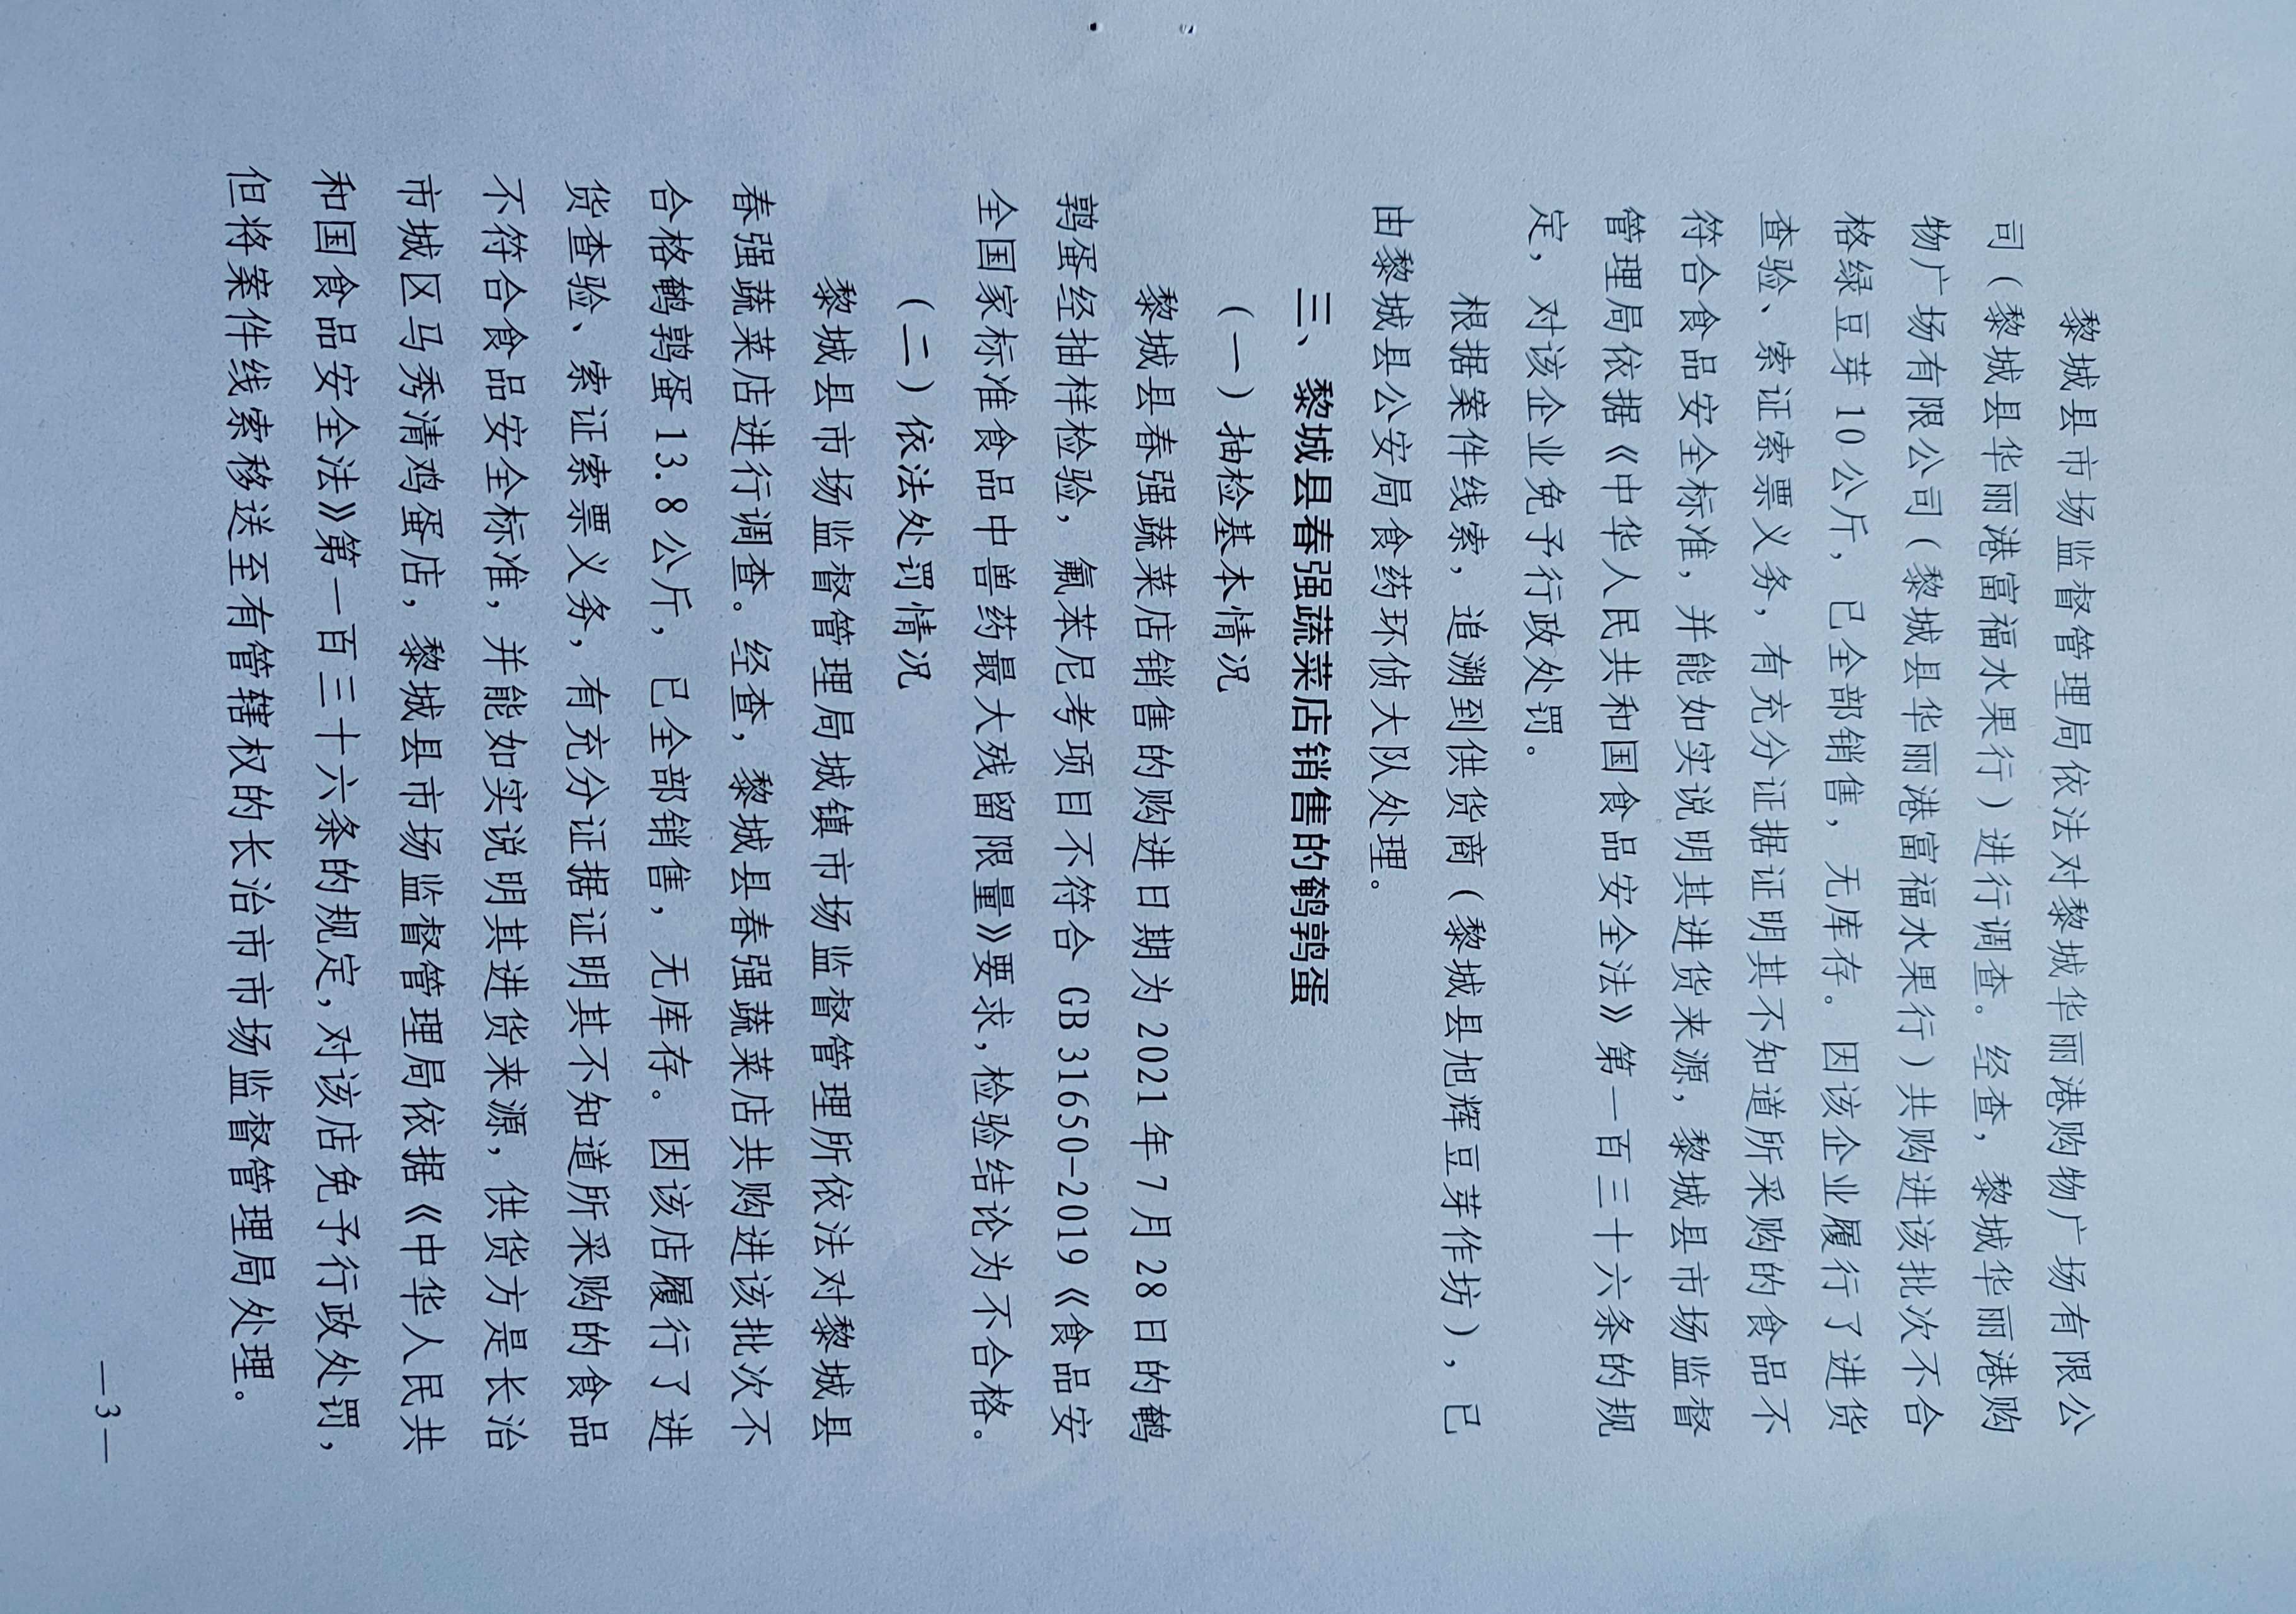 黎城县市场监督管理局依法对黎城华丽港购物广场有限公
司（黎城县华丽港富福水果行）进行调查。经查，黎城华丽港购
物广场有限公司（黎城县华丽港富福水果行）共购进该批次不合
格绿豆芽10公斤，已全部销售，无库存。因该企业履行了进货
查验、索证索票义务，有充分证据证明其不知道所采购的食品不
符合食品安全标准，并能如实说明其进货来源，黎城县市场监督
管理局依据《中华人民共和国食品安全法》第一百三十六条的规
定，对该企业免予行政处罚。
根据案件线索，追溯到供货商（黎城县旭辉豆芽作坊），已
由黎城县公安局食药环侦大队处理。
三、黎城县春强蔬菜店销售的鹌鹑蛋
（一）抽检基本情况
黎城县春强蔬菜店销售的购进日期为2021年7月28日的鹌
鹑蛋经抽样检验，氟苯尼考项目不符合 GB 31650-2019《食品安
全国家标准食品中兽药最大残留限量》要求,检验结论为不合格。
（二）依法处罚情况
黎城县市场监督管理局城镇市场监督管理所依法对黎城县
春强蔬菜店进行调查。经查，黎城县春强蔬菜店共购进该批次不
合格鹌鹑蛋13.8公斤，已全部销售，无库存。因该店履行了进
货查验、索证索票义务，有充分证据证明其不知道所采购的食品
不符合食品安全标准，并能如实说明其进货来源，供货方是长治
市城区马秀清鸡蛋店，黎城县市场监督管理局依据《中华人民共
和国食品安全法》第一百三十六条的规定,对该店免予行政处罚，
但将案件线索移送至有管辖权的长治市市场监督管理局处理。
—3—